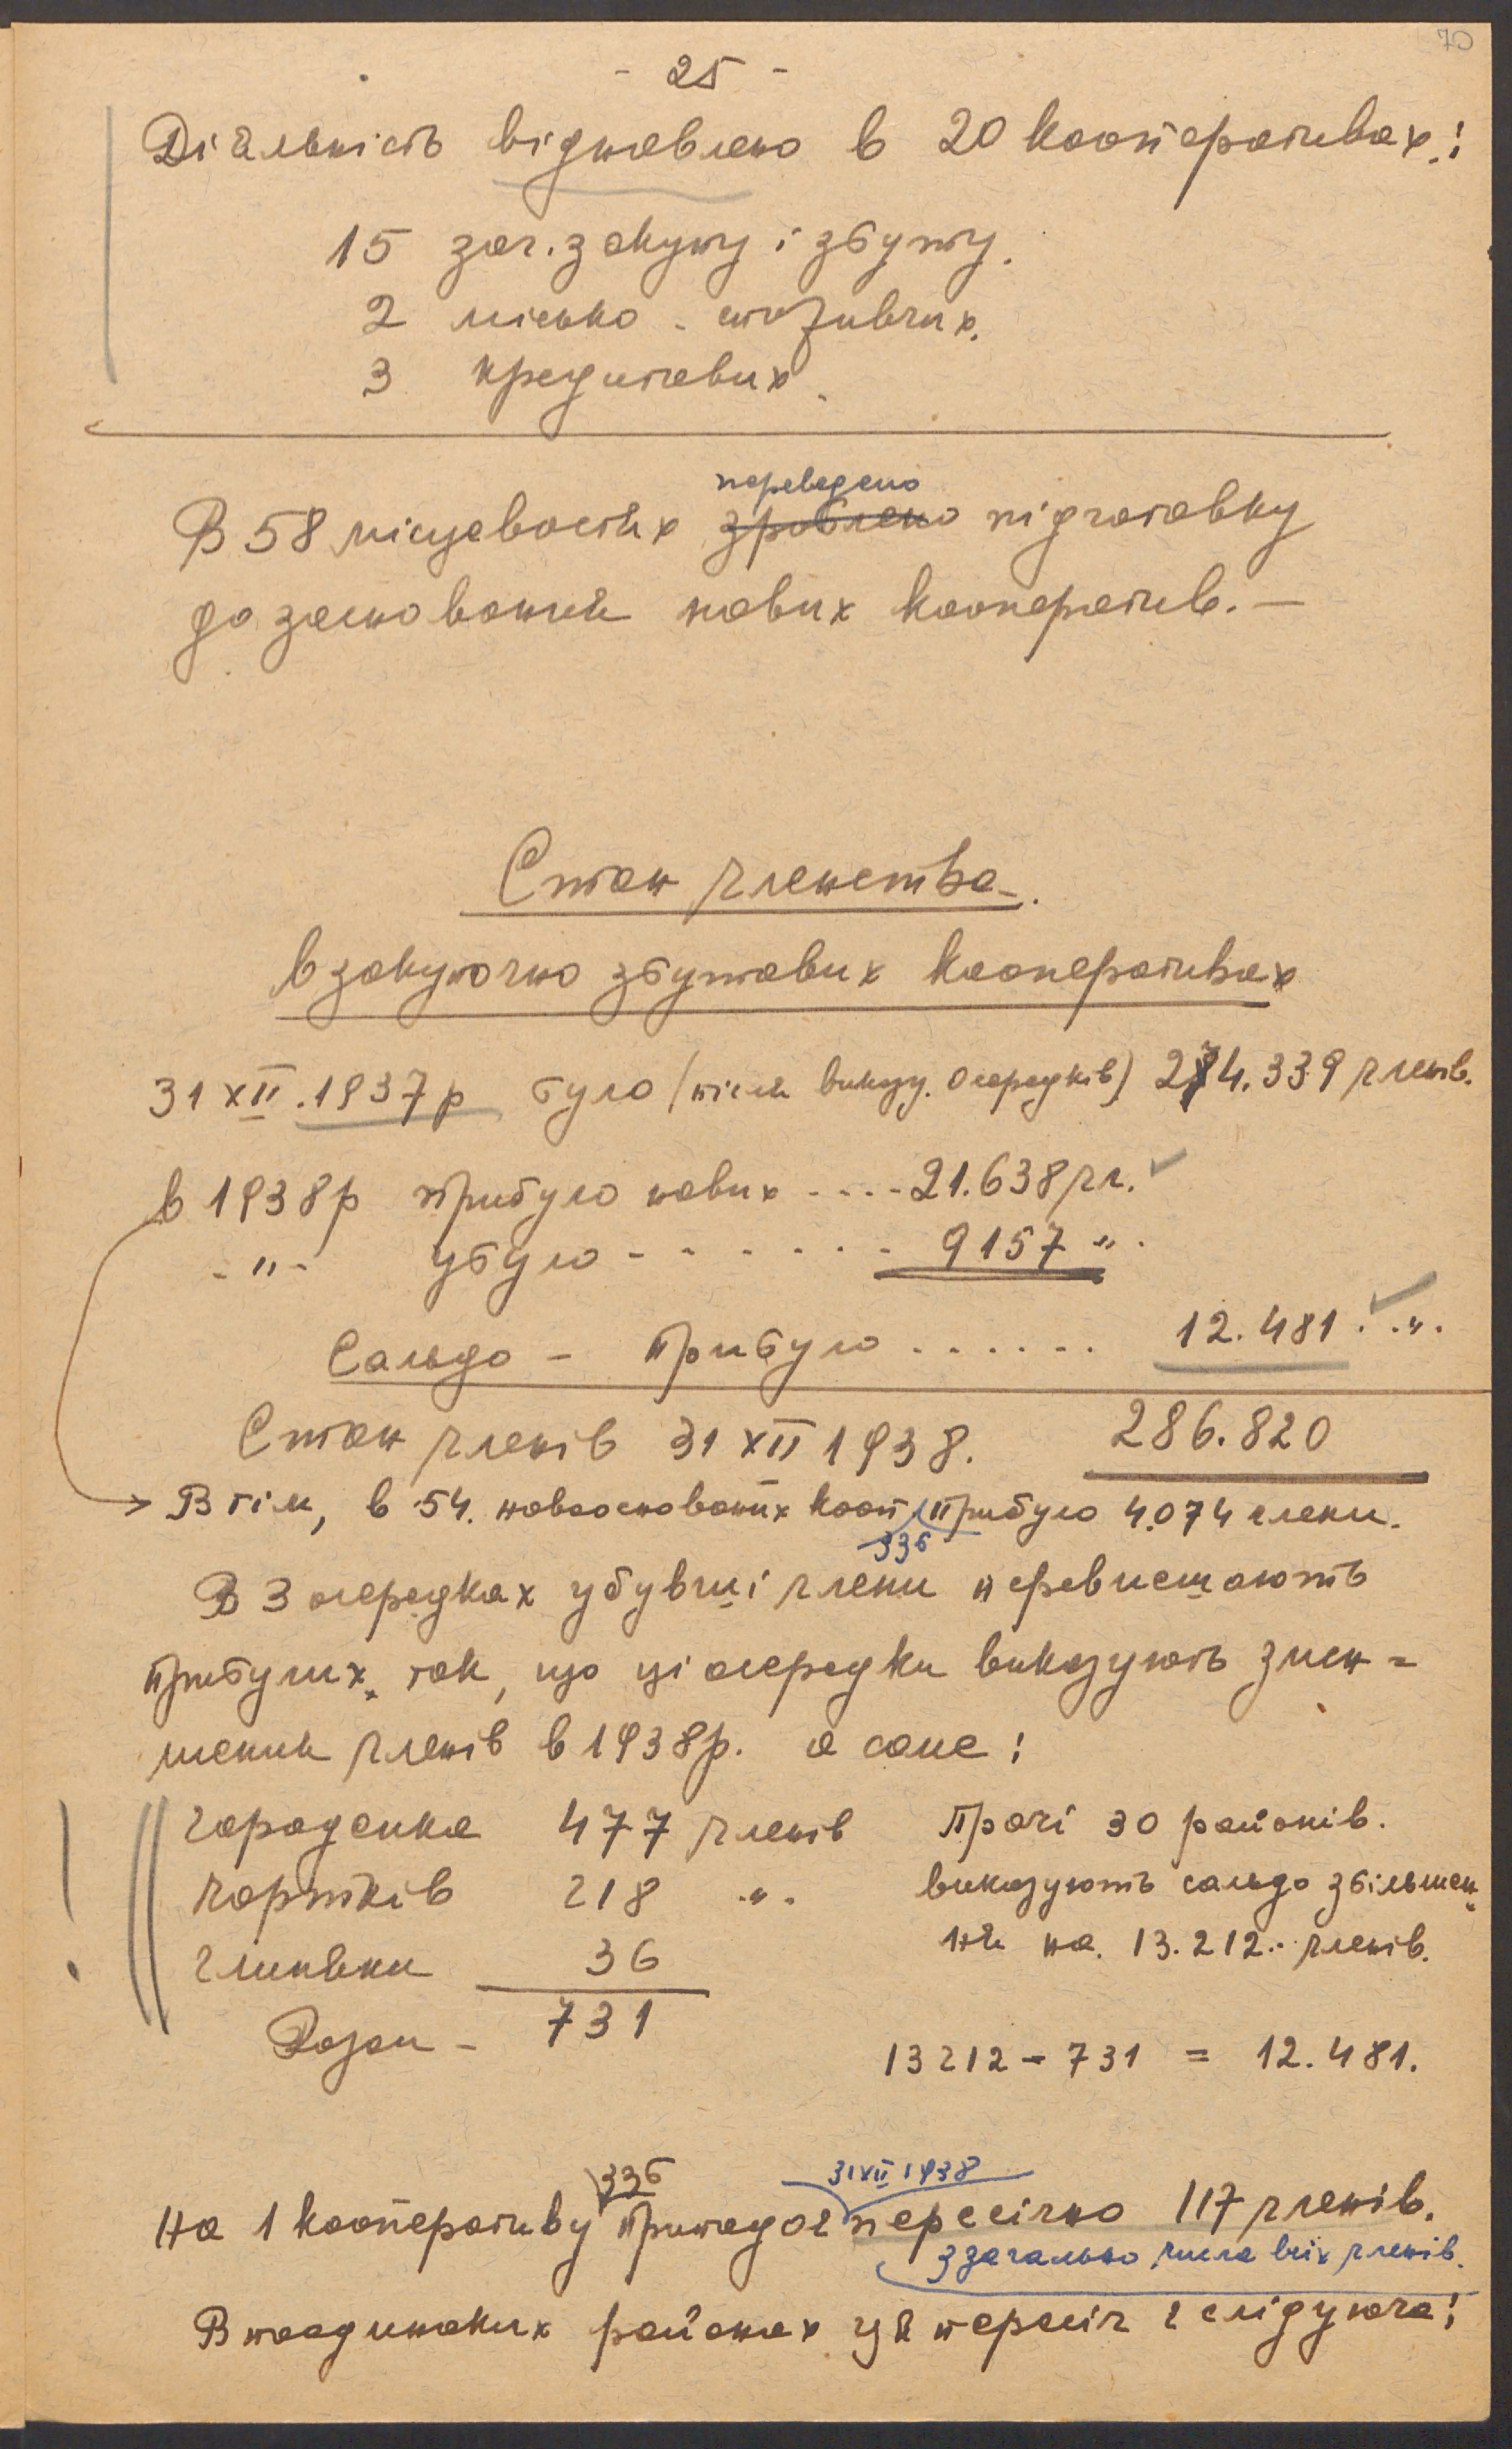 70
- 25 -
Діяльність відновлено в 20 кооперативах:
15 заг. закупу і збуту.
2 місько - споживчих.
3 кредитових.
переведено
В 58 місцевостях зроблено підготовку
до засновання нових кооператив. —
Стан членства.
в закупочно збутових кооперативах
31 XII. 1937 р було (після виказу. Осередків) 274.339 членів.
в 1938 р прибуло нових .... 21.638 чл.
- " - убуло - - - - - - - 9157 " .
Сальдо - прибуло ...... 12.481. ".
Стан членів 31 XII 1938. 286.820
В тім, в 54. новооснованих кооп прибуло 4.074 члени.
336
В 3 осередках убувші члени перевисшають
прибулих, так, що ці осередки виказують змен=
шення членів в 1938 р. а саме:
Городенка 477 членів
Чортків 218 ".
Глиняни 36
Разом - 731
Прочі 30 районів.
виказують сальдо збільшен
ня на. 13.212.- членів.
13212 - 731 = 12.481.
336 31 XII 1938
На 1 кооперативу припадає пересічно 117 членів.
з загально числа всіх членів.
В поодиноких районах ця пересіч є слідуюча: